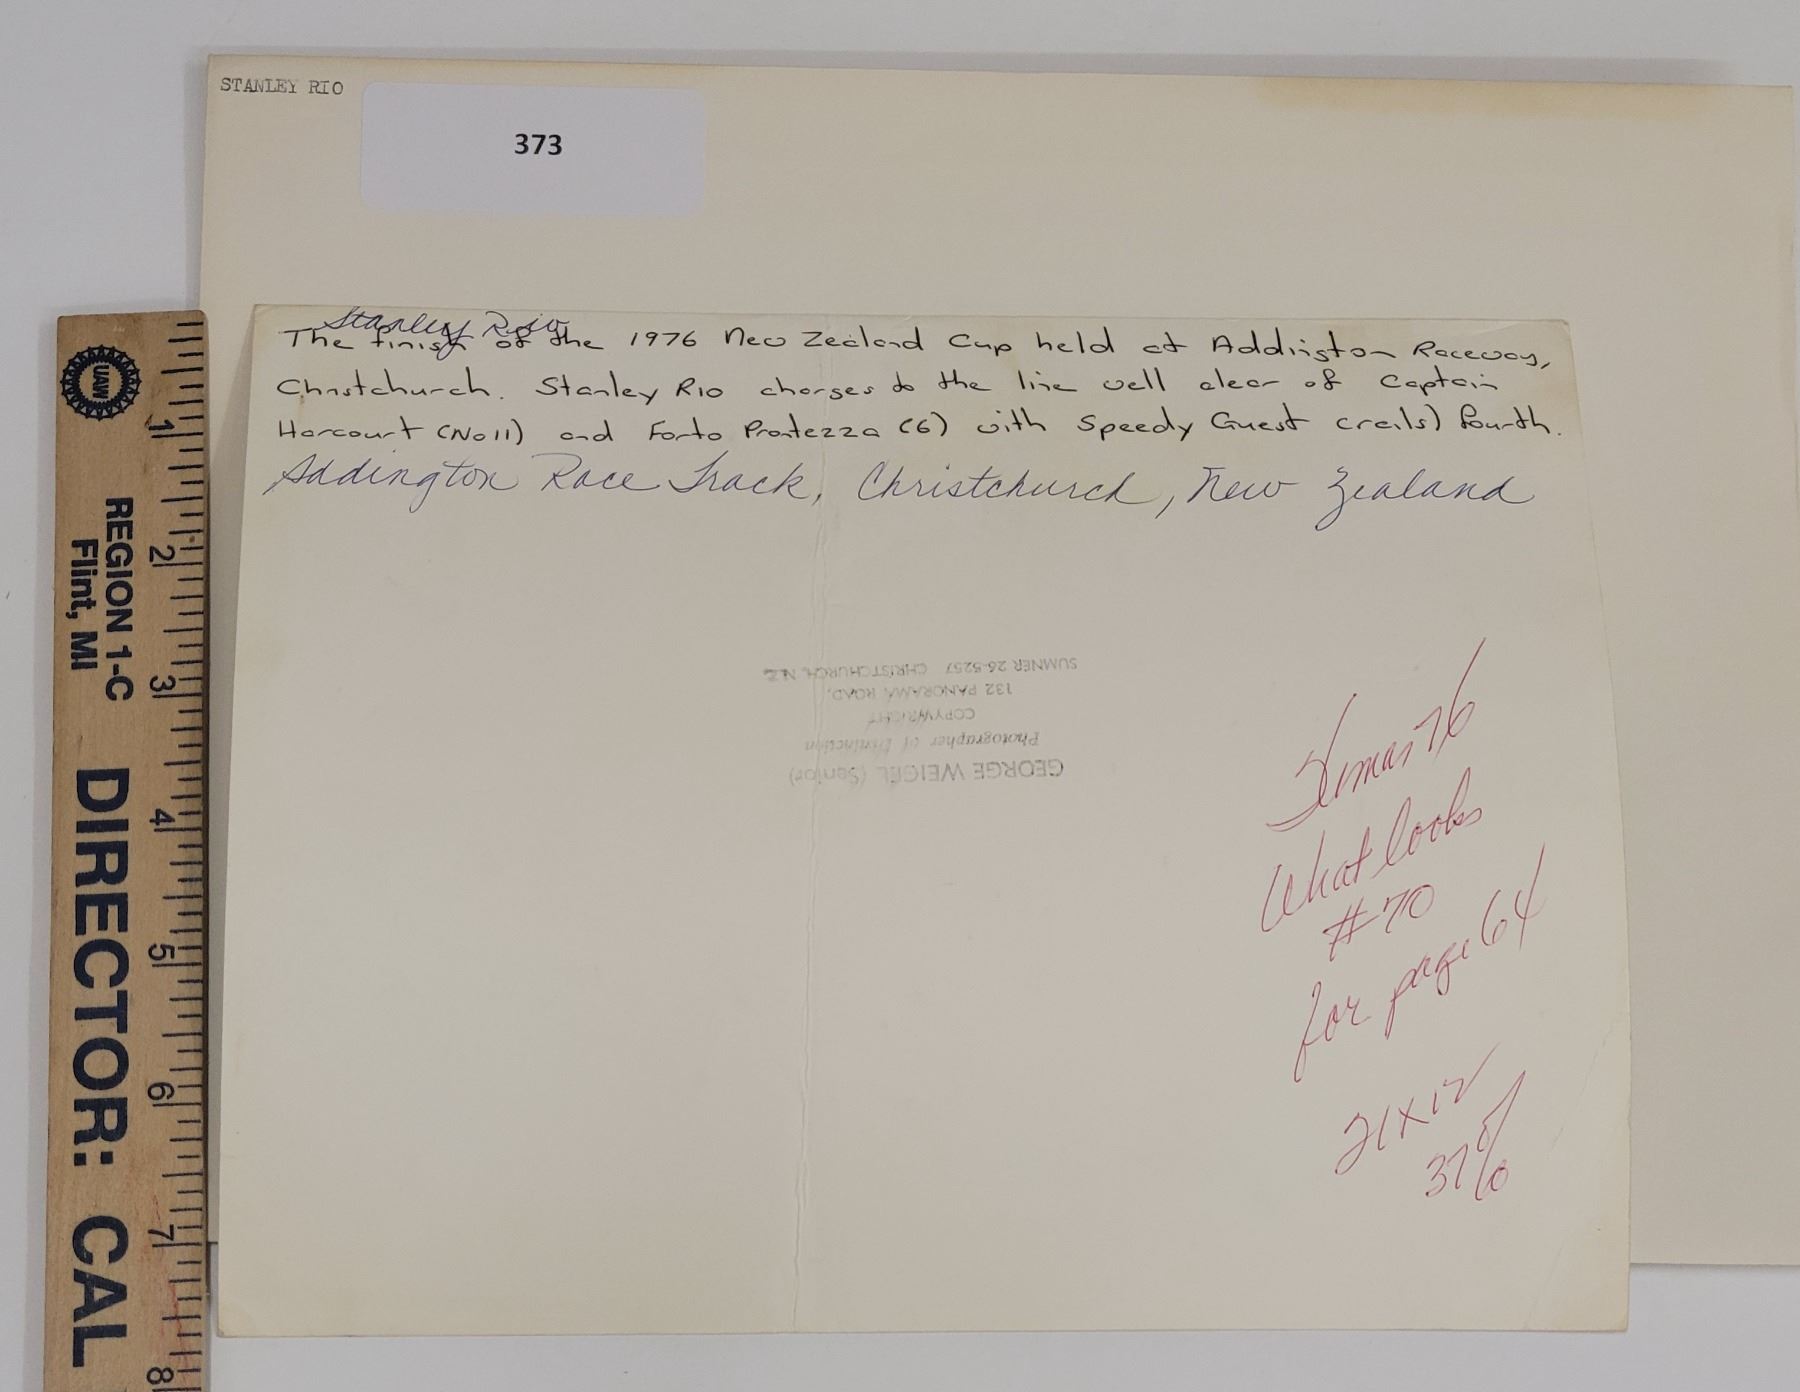 STANLEY RIO
373
Stanley Rio
The finish of the 1976 New Zealand Cup held at Addington Raceway,
Christchurch. Stanley Rio charges to the line well clear of Captain
Harcourt (No 11) and Forto Prontezza (6) with Speedy Guest (rails) fourth.
Addington Race Track, Christchurch, New Zealand
GEORGE WEIGEL (Senior)
Photographer of Distinction
COPYWRIGHT
132 PANORAMA ROAD,
SUMNER 26-5257 CHRISTCHURCH, N.Z.
76
What looks
#70
for page 64
21 x 12
37%
UAW
REGION 1-C
Flint, MI
DIRECTOR: CAL
1
2
3
4
5
6
7
8